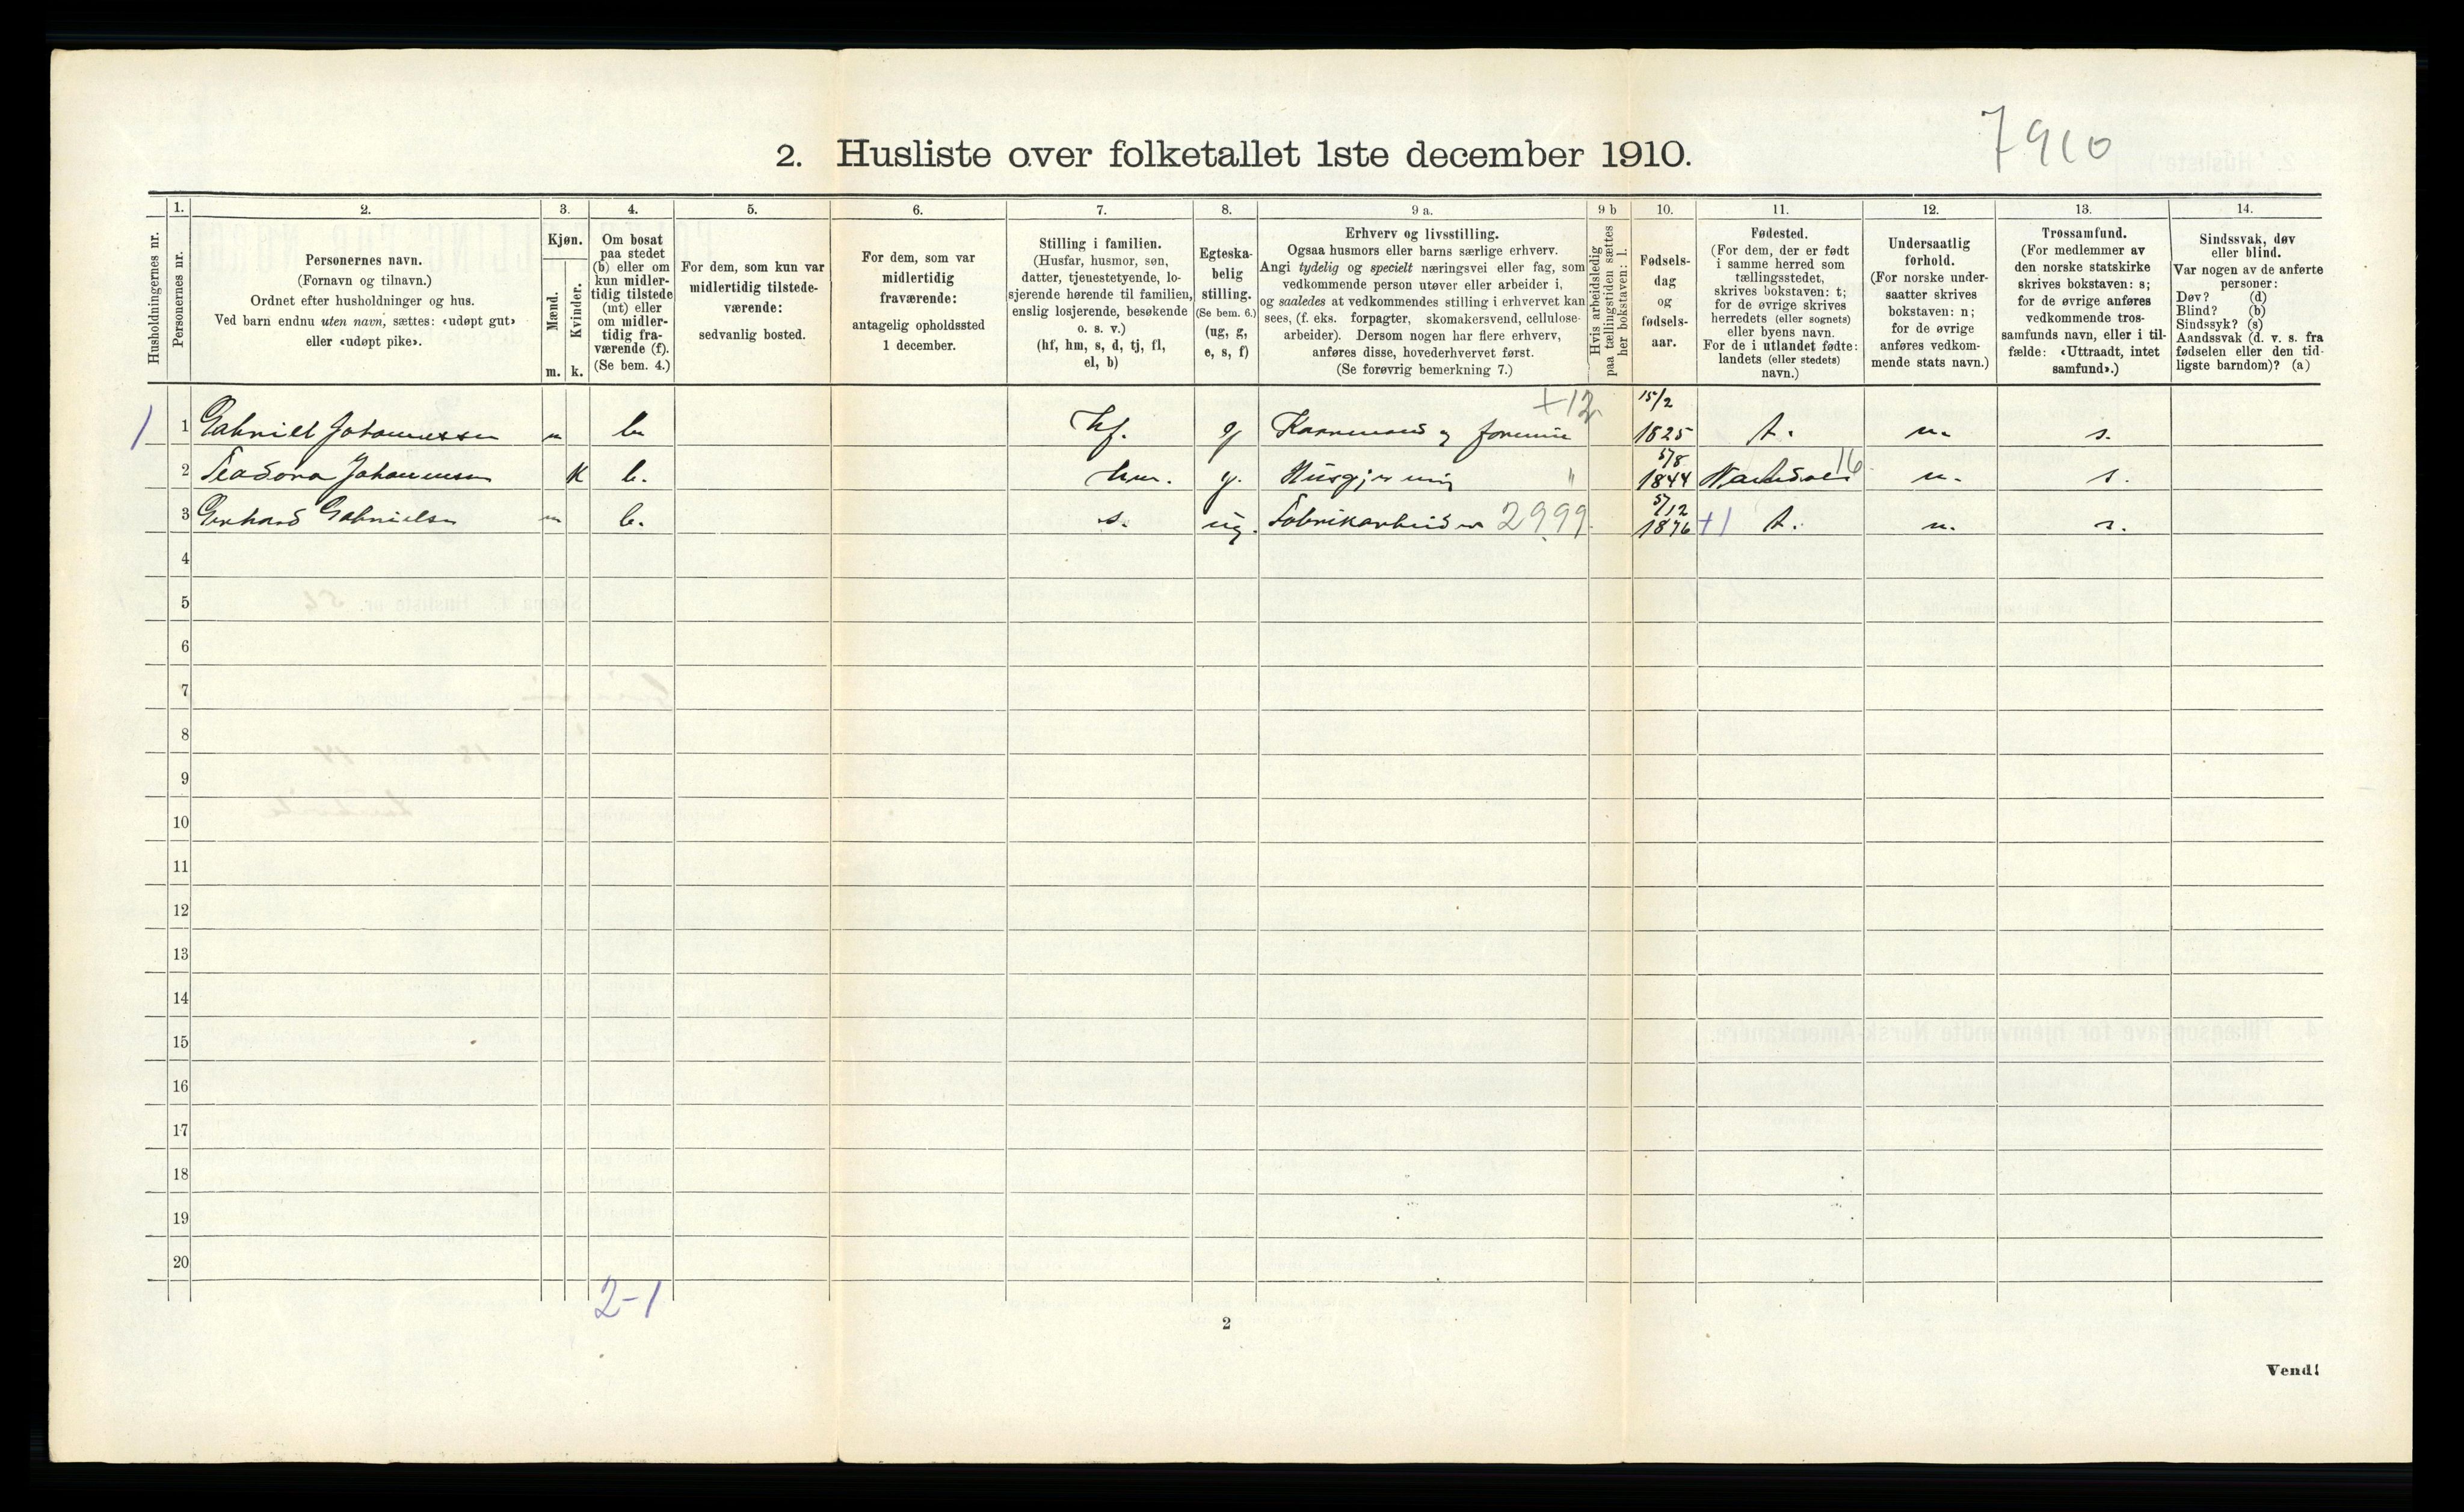 7910
2. Husliste over folketallet 1ste december 1910.
Husholdningernes nr.
1.
Personernes nr.
2.
Personernes navn.
(Fornavn og tilnavn.)
Ordnet efter husholdninger og hus.
Ved barn endnu uten navn, sættes: «udøpt gut»
eller «udøpt pike».
3.
Kjøn.
Mænd.
Kvinder.
m. k.
4.
Om bosat
paa stedet
(b) eller om
kun midler-
tidig tilstede
(mt) eller
om midler-
tidig fra-
værende (f).
(Se bem. 4.)
5.
For dem, som kun var
midlertidig tilstede-
værende:
sedvanlig bosted.
6.
For dem, som var
midlertidig
fraværende:
antagelig opholdssted
1 december.
7.
Stilling i familien.
(Husfar, husmor, søn,
datter, tjenestetyende, lo-
sjerende hørende til familien,
enslig losjerende, besøkende
o. s. v.)
(hf, hm, s, d, tj, fl,
el, b)
8.
Egteska-
belig
stilling.
(Se bem. 6.)
(ug, g,
e, s, f)
9 a.
Erhverv og livsstilling.
Ogsaa husmors eller barns særlige erhverv.
Angi tydelig og specielt næringsvei eller fag, som
vedkommende person utøver eller arbeider i,
og saaledes at vedkommendes stilling i erhvervet kan
sees, (f. eks. forpagter, skomakersvend, cellulose-
arbeider). Dersom nogen har flere erhverv,
anføres disse, hovederhvervet først.
(Se forøvrig bemerkning 7.)
9 b
Hvis arbeidsledig
paa tællingstiden sættes
her bokstaven: l.
10.
Fødsels-
dag
og
fødsels-
aar.
11.
Fødested.
(For dem, der er født
i samme herred som
tællingsstedet,
skrives bokstaven: t;
for de øvrige skrives
herredets (eller sognets)
eller byens navn.
For de i utlandet fødte:
landets (eller stedets)
navn.)
12.
Undersaatlig
forhold.
(For norske under-
saatter skrives
bokstaven: n;
for de øvrige
anføres vedkom-
mende stats navn.)
13.
Trossamfund.
(For medlemmer av
den norske statskirke
skrives bokstaven: s;
for de øvrige anføres
vedkommende tros-
samfunds navn, eller i til-
fælde: «Uttraadt, intet
samfund».)
14.
Sindssvak, døv
eller blind.
Var nogen av de anførte
personer:
Døv? (d)
Blind? (b)
Sindssyk? (s)
Aandssvak (d. v. s. fra
fødselen eller den tid-
ligste barndom)? (a)
1 1 Gabriell Johannessen m b hf. g +12 15/2 1825 t. n. s.
2 Teadora Johannessen K b. hm. g. Husgjerning " 5/8 1844 16 n. s.
3 Gerhard Gabrielsen m b. s. ug. Fabrikarbeider 2999 5/12 1876 +1 t. n. s.
4
5
6
7
8
9
10
11
12
13
14
15
16
17
18
19
20
2-1
2
Vend!